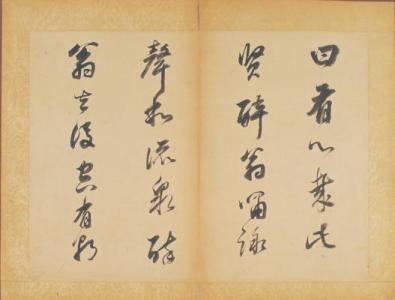 曰有心哉此
賢醉翁嘯詠
聲和流泉醉
翁去後空有朝